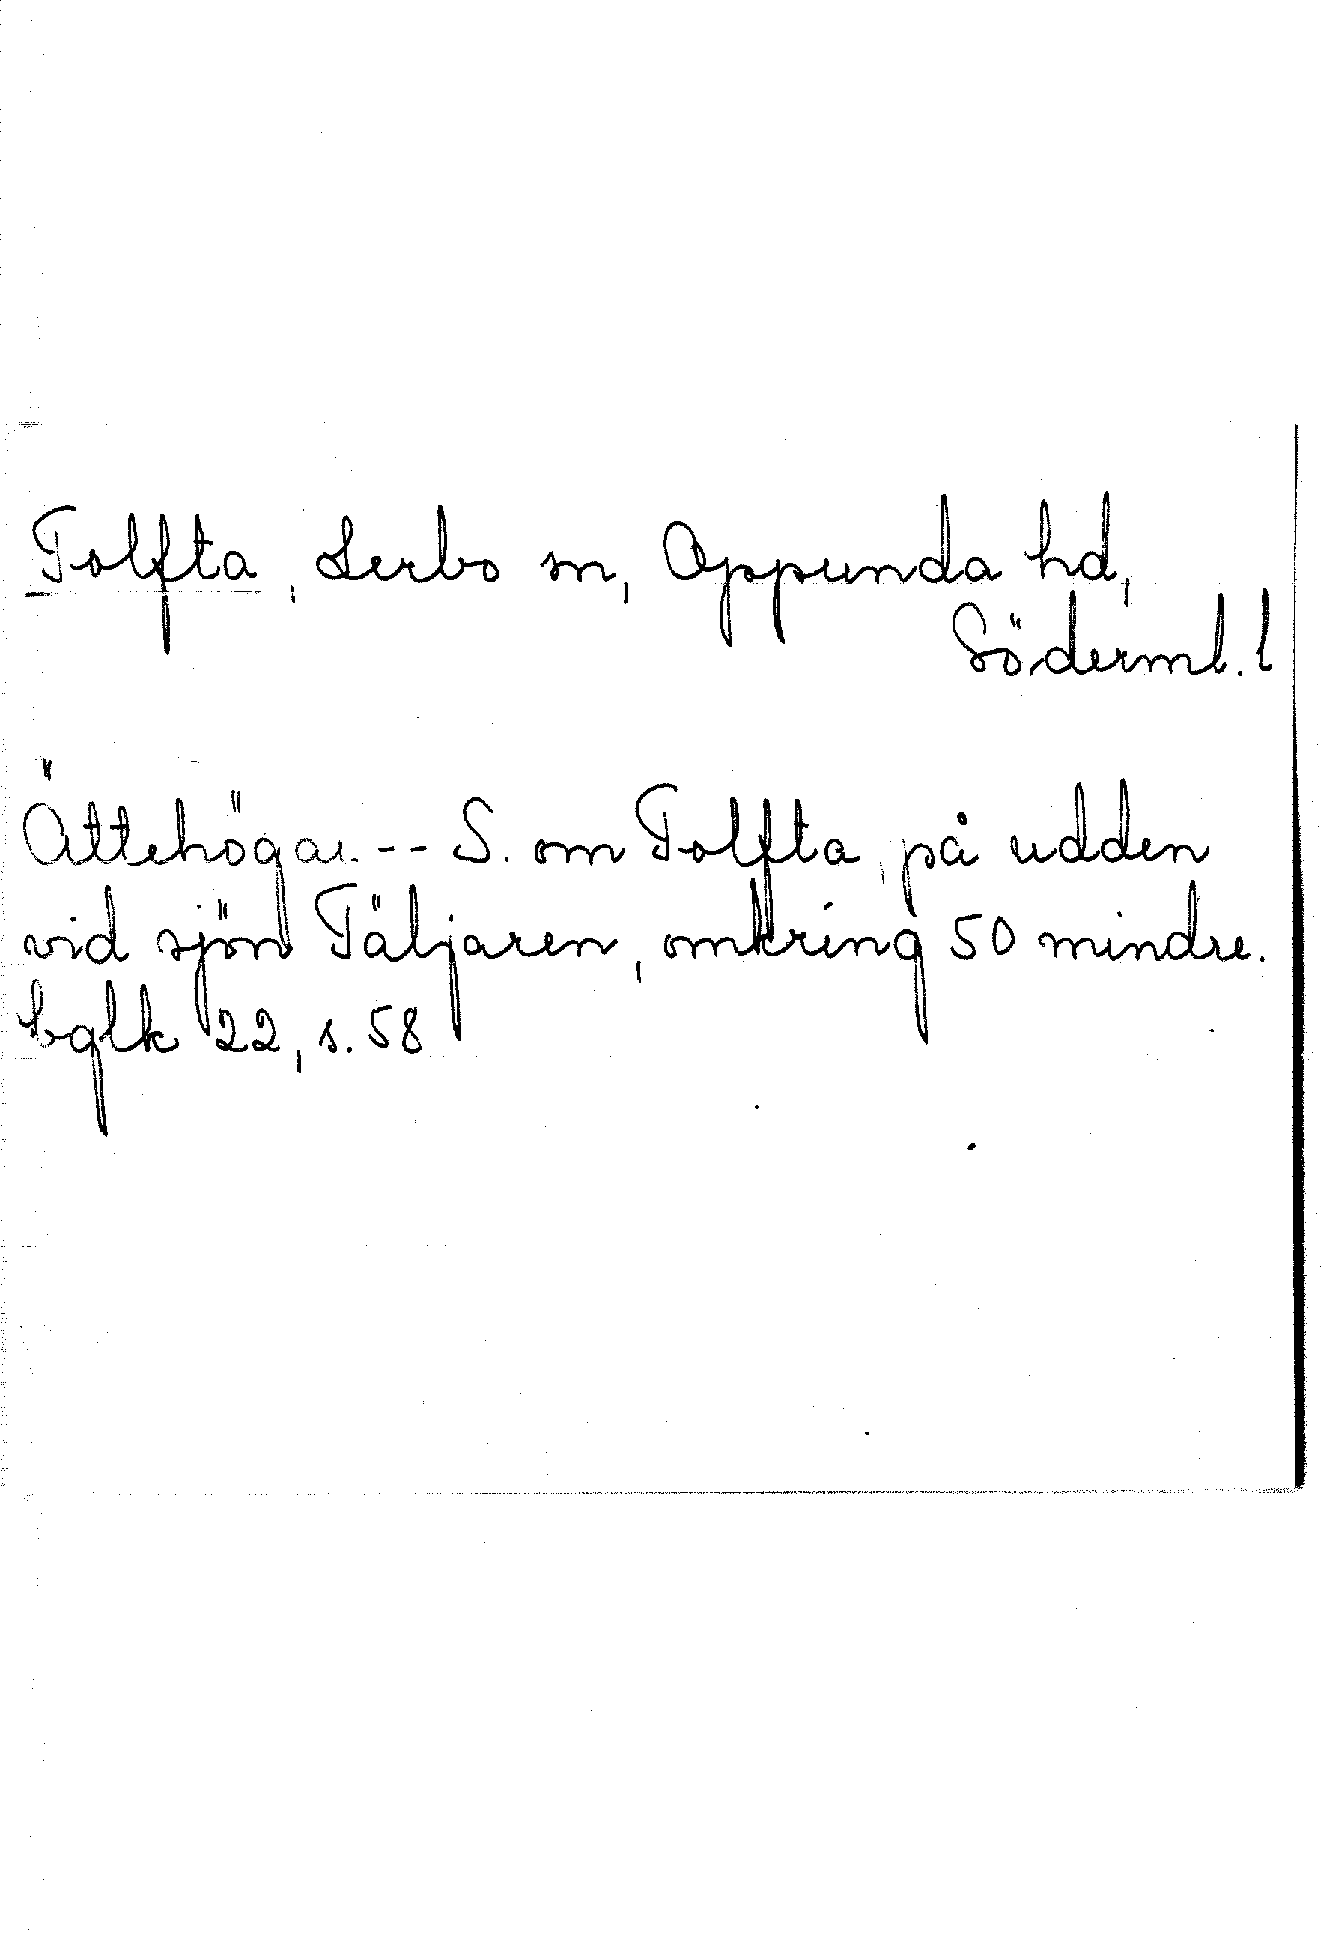 Tolfta, Lerbo sn, Oppunda hd,
Söderml. l
Ättehögar.-- S. om Tolfta, på udden
vid sjön Täljaren, omkring 50 mindre.
bglk 22, s. 58